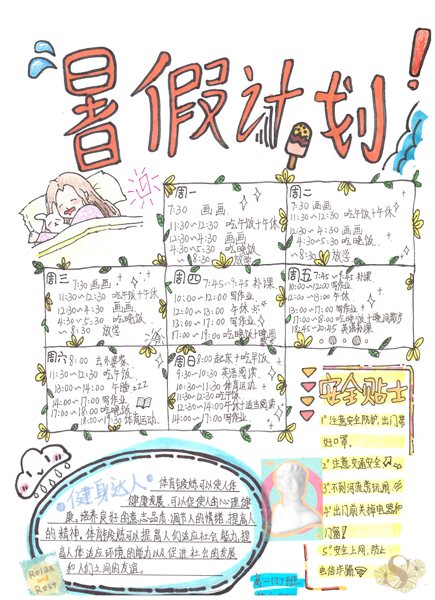 暑假计划!
周一
7:30 画画
11:30~12:30 吃午饭+午休
12:30~4:30 画画
4:30~5:30 吃晚饭
~8:30 放学
周二
7:30 画画
11:30~12:30 吃午饭+午休
12:30~4:30 画画
4:30~5:30 吃晚饭
~8:30 放学
周三
7:30 画画
11:30~12:30 吃午饭+午休
12:30~4:30 画画
4:30~5:30 吃晚饭
~8:30 放学
周四
7:45~9:45 补课
10:00~12:00 写作业
12:00~13:00 午休
13:00~ 写作业
17:00~19:00 吃晚饭+晚间
周五
7:45~9:45 补课
10:00~12:00 写作业
12:00~13:00 午休
13:00~ 写作业
17:00~8:00 吃晚饭+晚间散步
18:45~20:45 英语补课
周六
8:00
11:30~12:30 吃午饭
13:00~14:00 午睡 zzz
14:00~17:00 写作业
17:00~18:00 吃晚饭
18:00~19:30 体育运动
周日
8:00 起床+吃早饭
9:30~10:30 英语阅读
10:30~11:30 体育运动
11:30~12:30 吃午饭
12:30~14:00 午休+适当阅读
14:00~ 写作业
安全贴士
1° 注意安全防护,出门带
好口罩。
2° 注意交通安全
3° 不到河流旁玩闹
4° 出门前关掉电器和
门窗!
5° 安全上网,防止
电信诈骗
健身达人
体育锻炼可以使人体
健康发展,可以促使人的心理健
康,培养良好的意志品质,调节人的情绪,提高人
的精神,体育锻炼可以提高人们适应社会能力,提
高人体适应环境的能力以及促进社会的发展
和人们之间的友谊。
Relax
and
Rest
高一(3)班